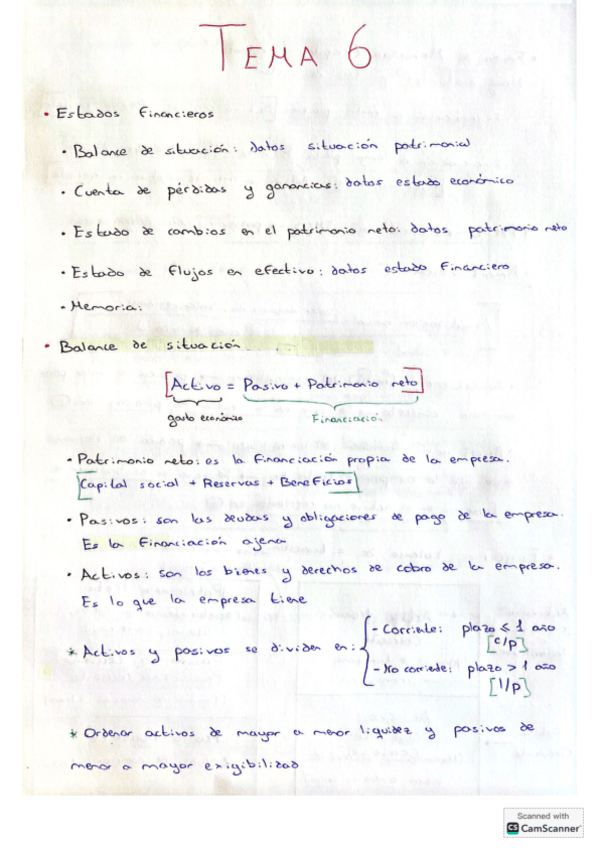 TEMA 6
• Estados Financieros
• Balance de situación: datos situación patrimonial
• Cuenta de pérdidas y ganancias: datos estado económico
• Estado de cambios en el patrimonio neto: datos patrimonio neto
• Estado de flujos en efectivo: datos estado Financiero
• Memoria:
• Balance de situación
[Activo = Pasivo + Patrimonio neto]
gasto económico Financiación
• Patrimonio neto: es la Financiación propia de la empresa.
[Capital social + Reservas + Beneficios]
• Pasivos: son las deudas y obligaciones de pago de la empresa.
Es la Financiación ajena
• Activos: son los bienes y derechos de cobro de la empresa.
Es lo que la empresa tiene
* Activos y pasivos se dividen en:
- Corriente: plazo ≤ 1 año
[c/p]
- No corriente: plazo > 1 año
[l/p]
* Ordenar activos de mayor a menor liquidez y pasivos de
menor a mayor exigibilidad
Scanned with
CS CamScanner